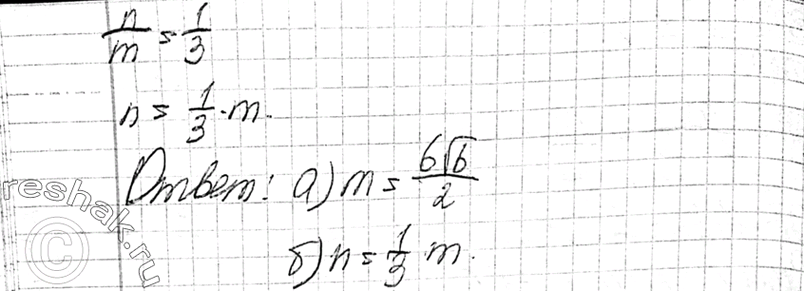 n/m = 1/3
n = 1/3 · m.
Ответ: а) m = 6√6/2
б) n = 1/3 m.
reshak.ru
©